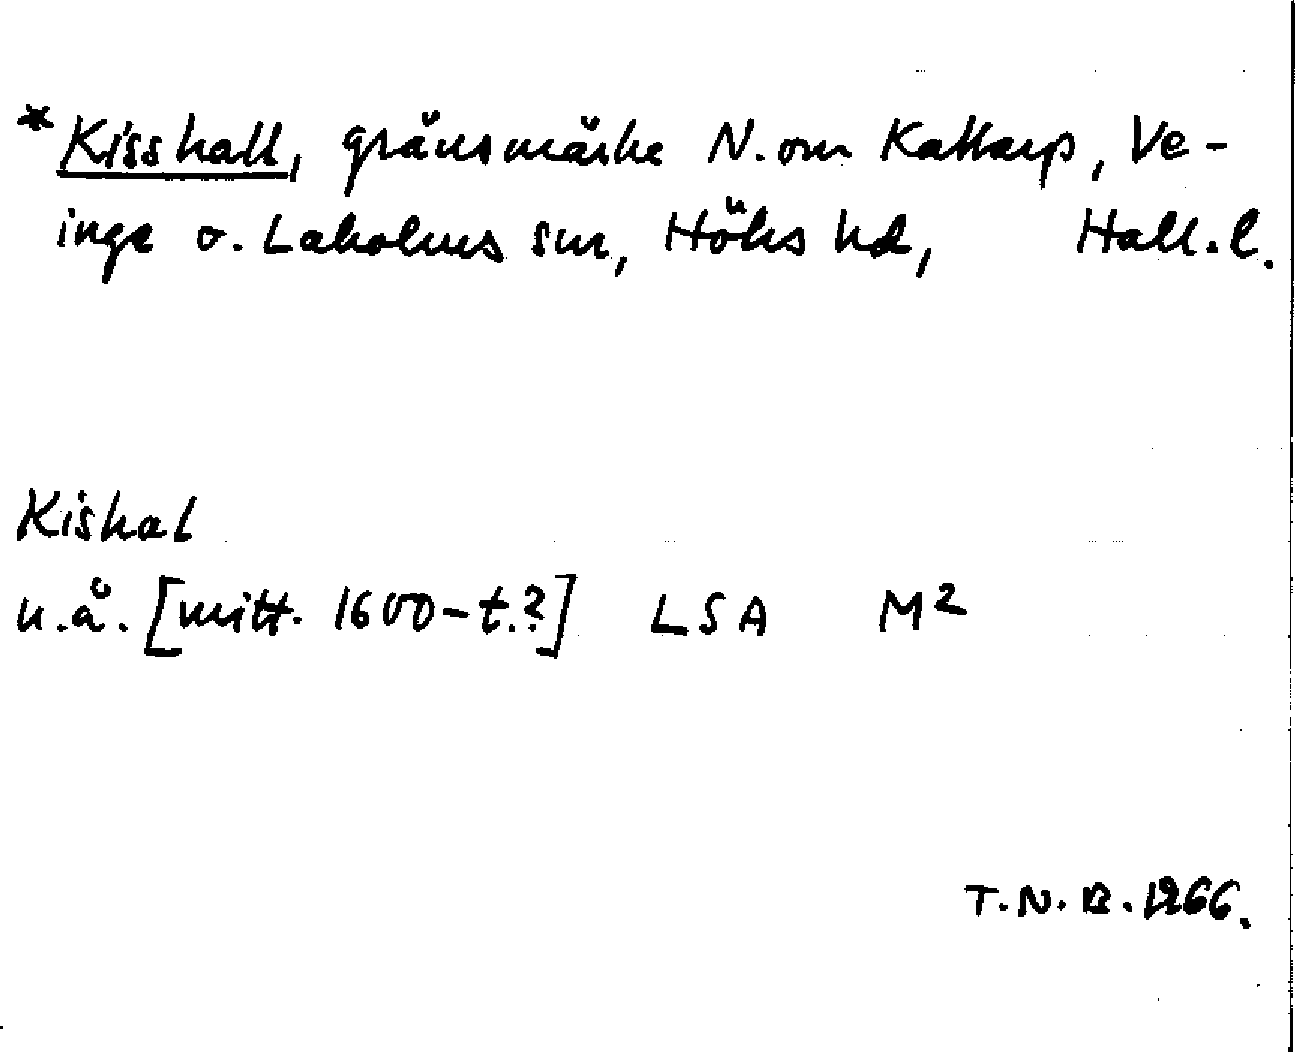 *Kisshall, gränsmärke N. om Kattarp, Ve-
inge o. Laholms snr, Höks hd, Hall. l.
Kishal
u.å. [mitt. 1600-t.?] LSA M2
T.N.B. 1966.